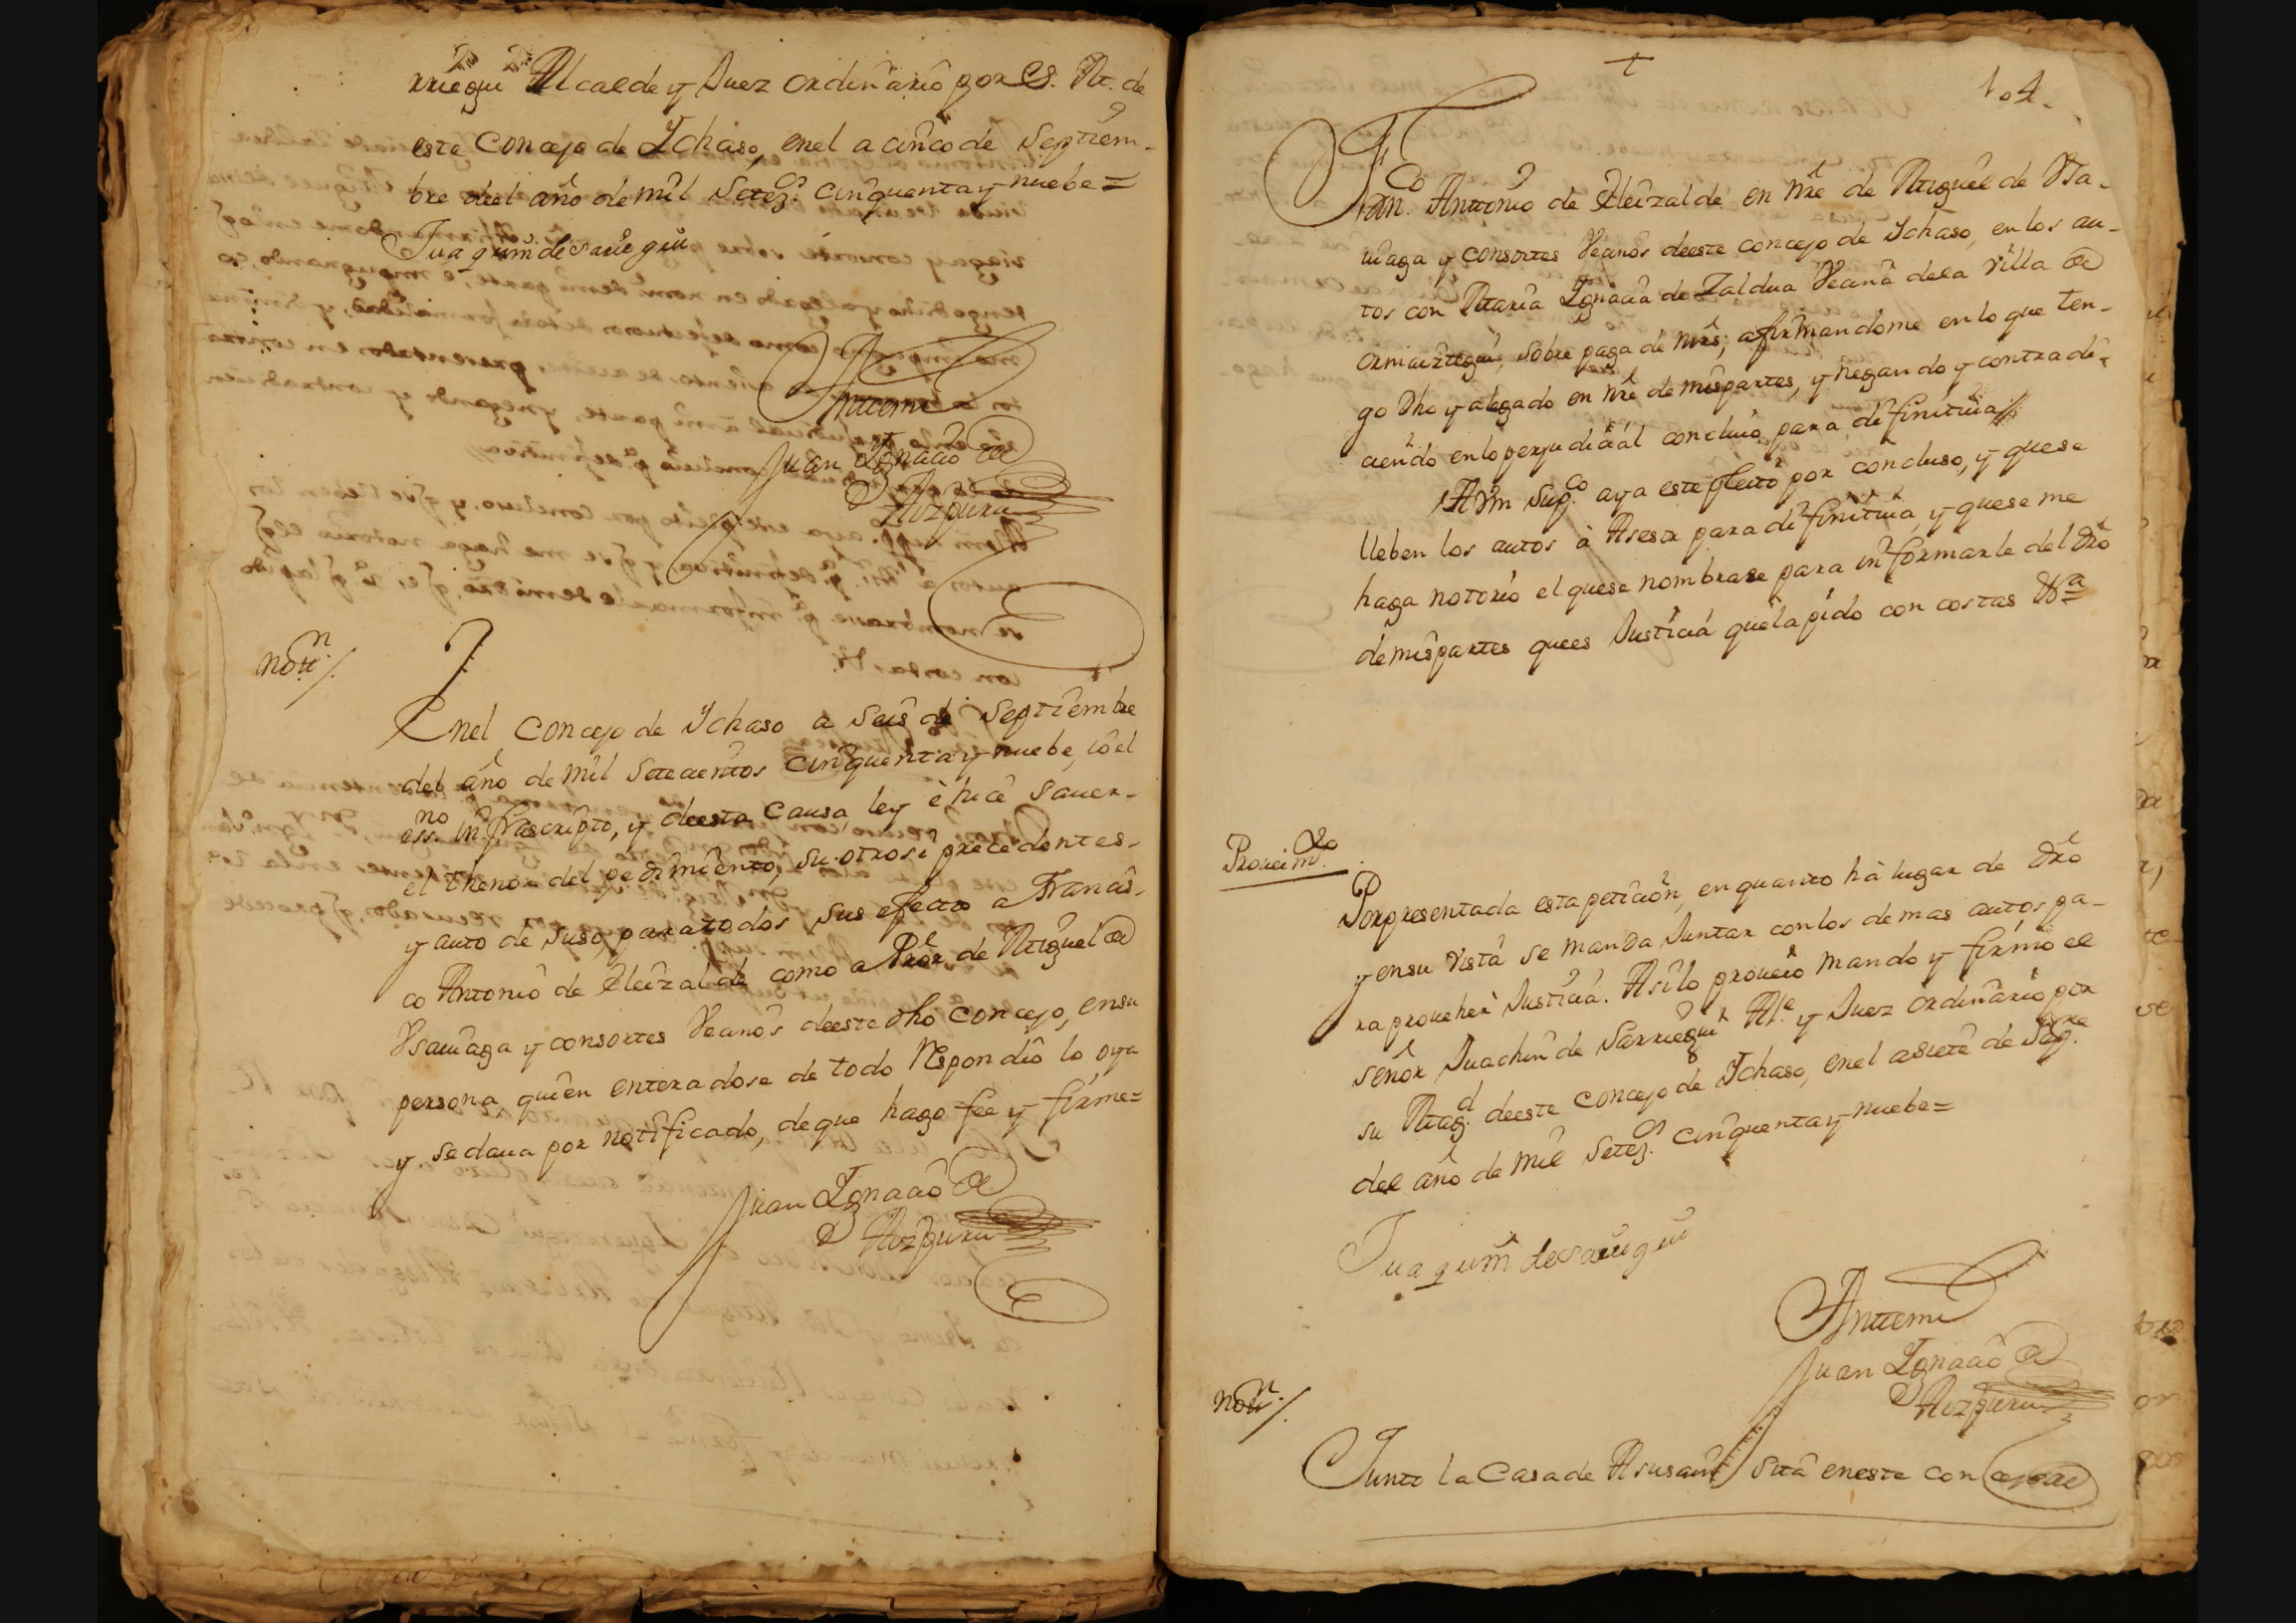 rriegui Alcalde y Juez ordinario por S. M. de
este Concejo de Ychaso, enel a cinco de Septiem-
bre deel año de mil Setez.os cinquenta y nuebe=
Juaquim de sarriegui
Antemi
Juan Ygnacio de
Aizpuru
Notn./.
Enel Concejo de Ychaso a seis de Septiembre
del año de mil Setecientos cinquenta y nuebe, io el
essno. infrascripto, y deesta Causa, ley è hice sauer-
el thenor del pedimiento, su otrosi precedentes-
y auto de suso, para todos sus efectos a Francis-
co Antonio de Eleizalde como a Pror de Miguel de
Vsauiaga y consortes Vecinos deeste dho concejo, ensu
persona quien enteradose de todo Respondió lo oya
y sedaua por notificado, de que hago fee y firme=
Juan Ygnacio de
Aizpuru
104.
Franco. Antonio de Eleizalde en nre de Miguel de Vsa-
uiaga y consortes Vecinos deeste concejo de Ychaso, en los au-
tos con Maria Ygnacia de Zaldua Vecina dela Villa de
ormaiztegui, sobre paga de mrs; afirmandome en lo que ten-
go dho y alegado en nre de mis partes, y negando y contradi-
ciendo enlo perjudicial concluio para difinitiua//
A Vm Supco. aya este pleito por concluso, y quese
lleben los autos à Asesor para difinitiua, y quese me
haga notorio el quese nombrase para informarle del dro
demispartes quees Justicia quela pido con costas Va=
Proueimto.
Porpresentada esta peticion, enquanto hà lugar de dro
y ensu vista se manda Juntar conlos demas autos pa-
ra proueher Justicia. Asilo proueio mando y firmo el
señor Juachin de Sarriegui Ale. y Juez ordinario por
su Magd. deeste concejo de Ychaso, enel asiete de Sepre.
del año de mil Setez.os cinquenta y nuebe=
Juaquim de sarriegui
Antemi
Juan Ygnacio de
Aizpuru
Notn./.
Junto la Casa de Asusain sita eneste concejo de